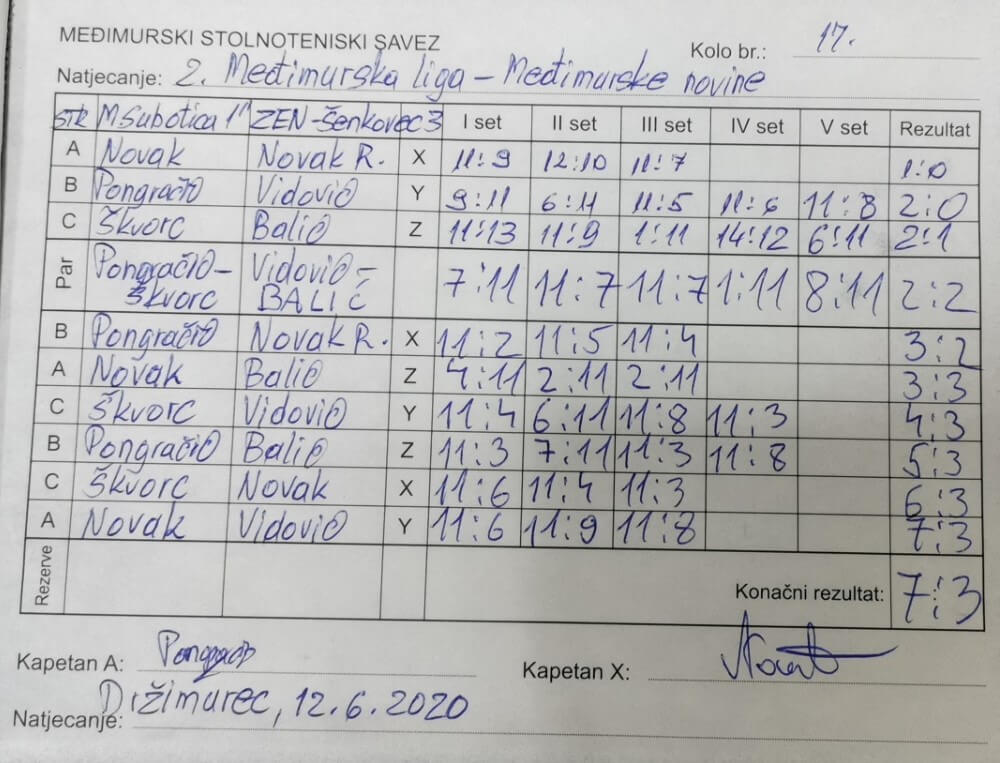 MEĐIMURSKI STOLNOTENISKI SAVEZ
Kolo br.: 17.
Natjecanje: 2. Međimurska liga – Međimurske novine
STK M Subotica 1" ZEN-Šenkovec 3 I set II set III set IV set V set Rezultat
A Novak Novak R. X 11:9 12:10 11:7 1:0
B Pongračić Vidović Y 9:11 6:11 11:5 11:6 11:8 2:0
C Škvorc Balić Z 11:13 11:9 1:11 14:12 6:11 2:1
Par Pongračić– Vidović–
Škvorc BALIĆ 7:11 11:7 11:7 1:11 8:11 2:2
B Pongračić Novak R. X 11:2 11:5 11:4 3:2
A Novak Balić Z 4:11 2:11 2:11 3:3
C Škvorc Vidović Y 11:4 6:11 11:8 11:3 4:3
B Pongračić Balić Z 11:3 7:11 11:3 11:8 5:3
C Škvorc Novak X 11:6 11:4 11:3 6:3
A Novak Vidović Y 11:6 11:9 11:8 7:3
Rezerve Konačni rezultat: 7:3
Kapetan A: Pongračić Kapetan X: Novak
Držimurec, 12.6.2020
Natjecanje: